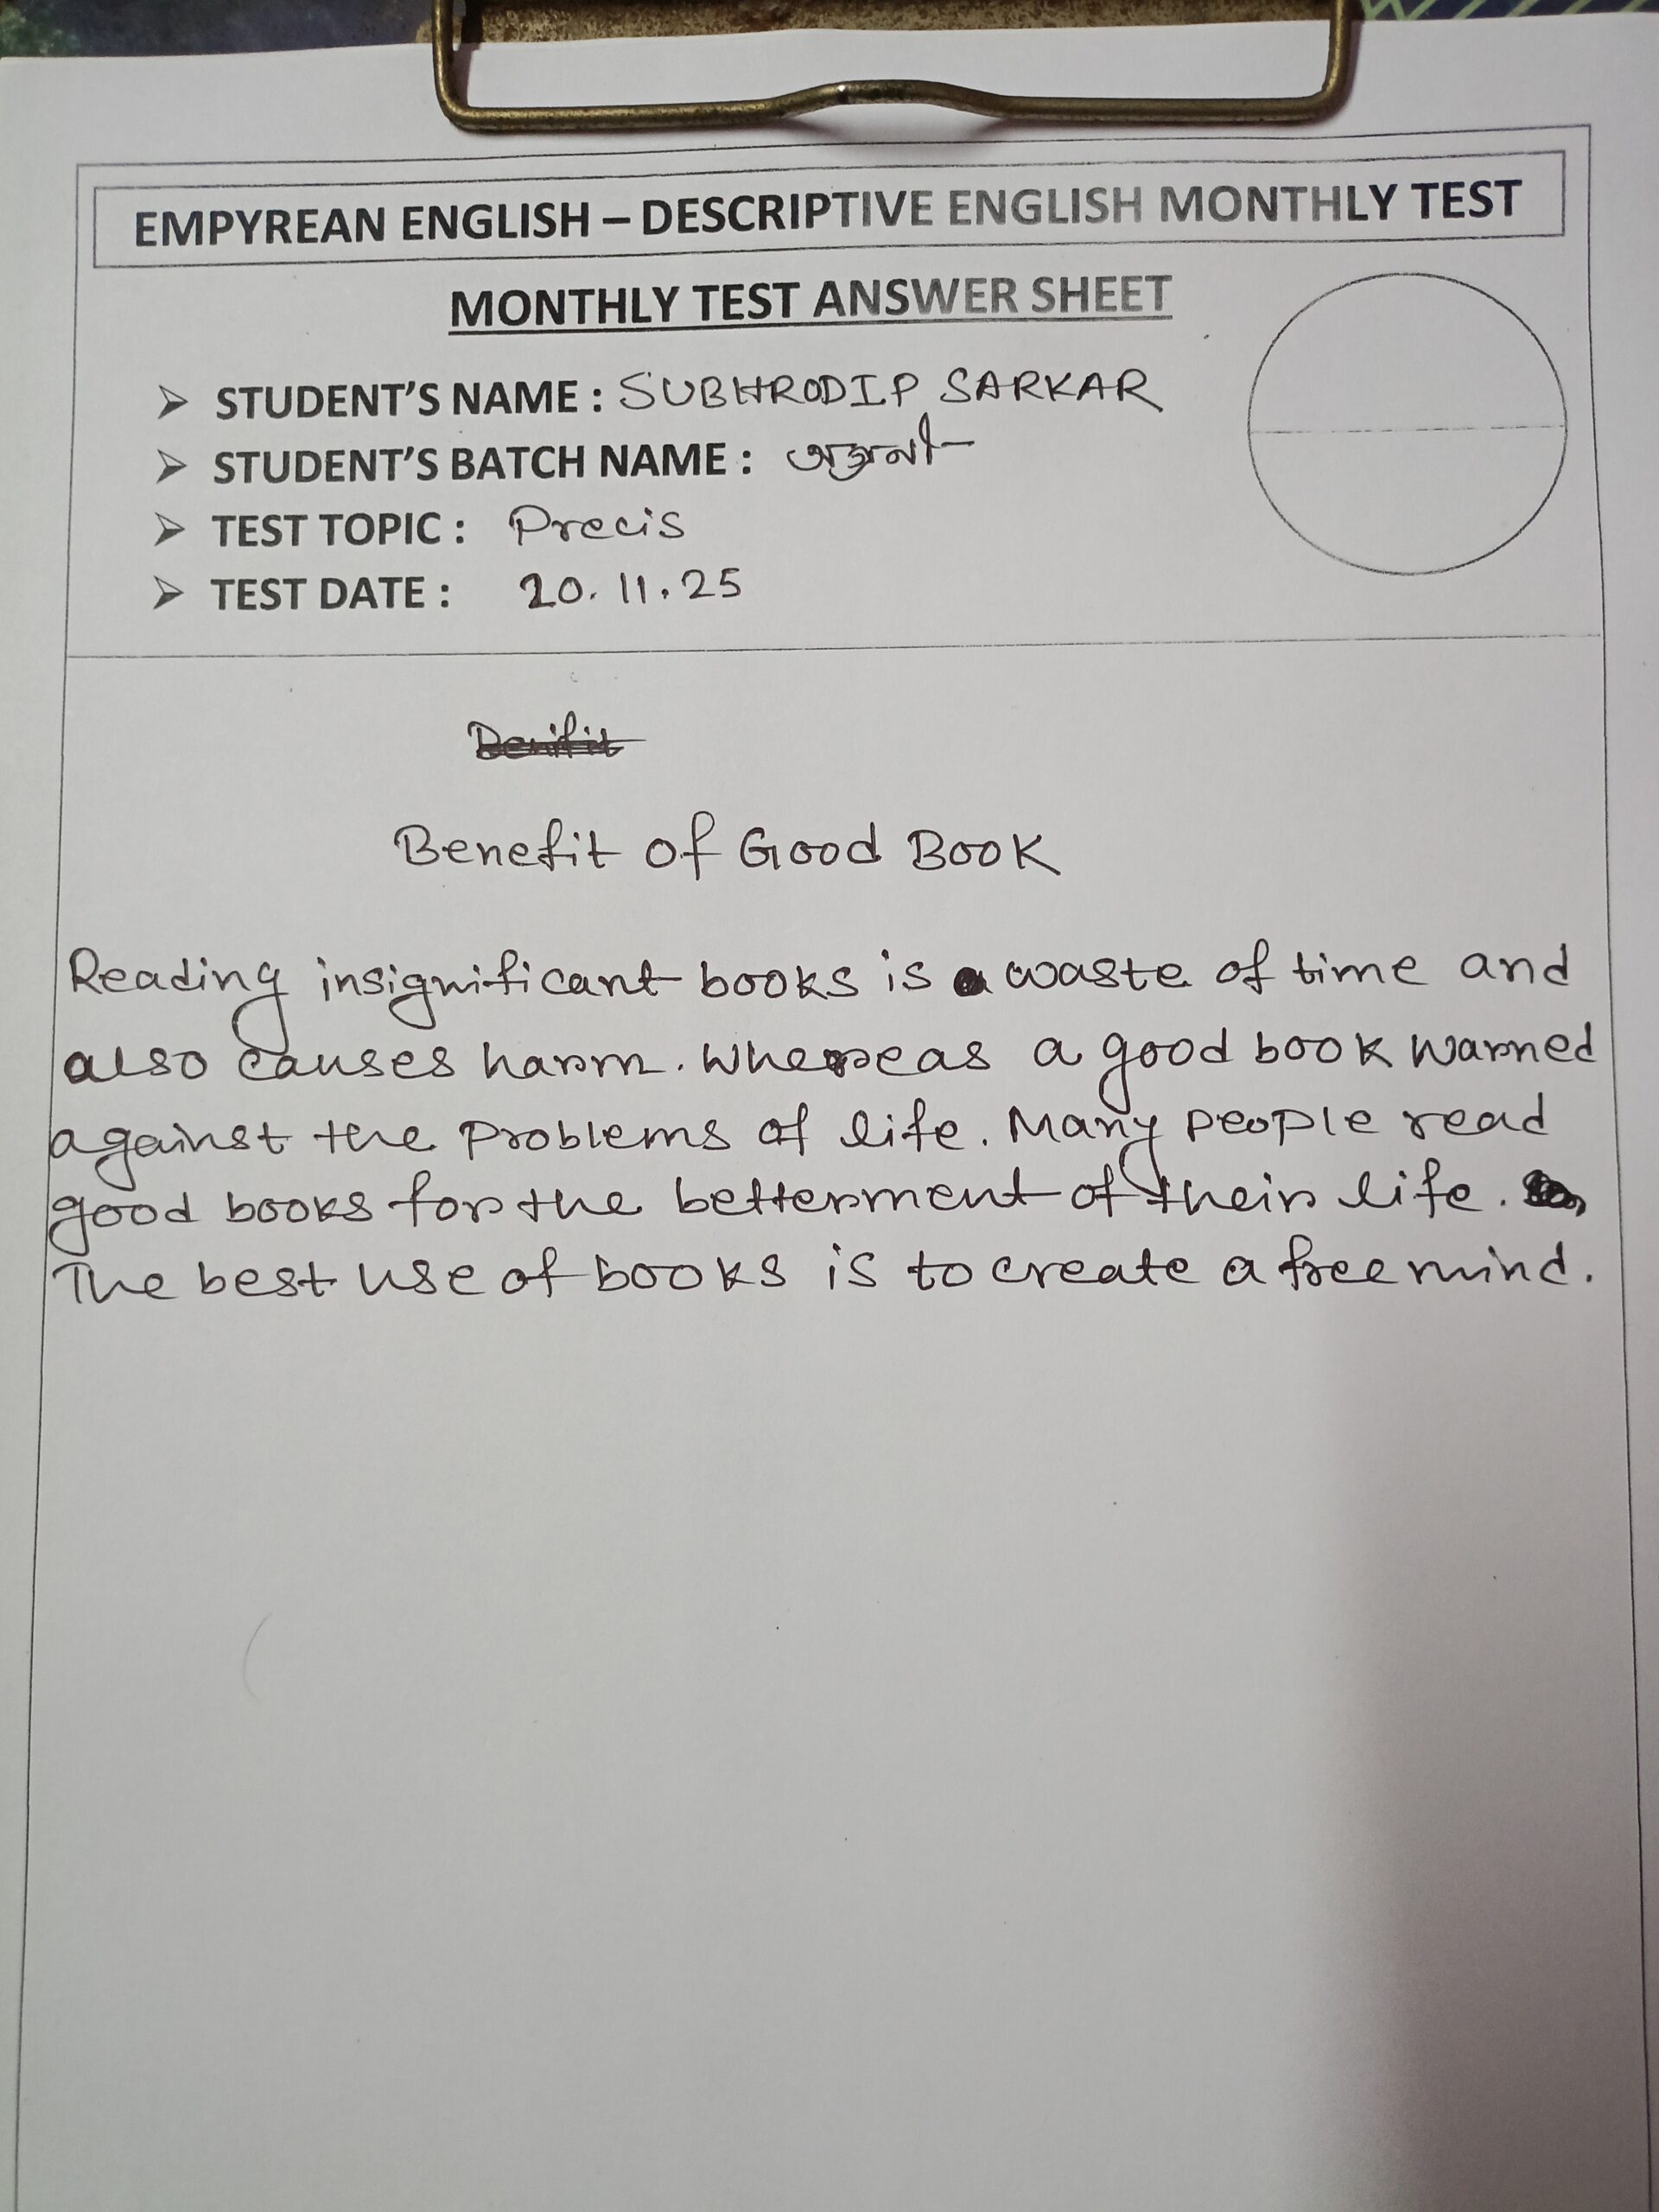 EMPYREAN ENGLISH – DESCRIPTIVE ENGLISH MONTHLY TEST
MONTHLY TEST ANSWER SHEET
➢ STUDENT'S NAME : SUBHRODIP SARKAR
➢ STUDENT'S BATCH NAME :
➢ TEST TOPIC : Precis
➢ TEST DATE : 20.11.25
Benifit
Benefit of Good Book
Reading insignificant books is a waste of time and
also causes harm. Whereas a good book warned
against the problems of life. Many people read
good books for the betterment of their life.
The best use of books is to create a free mind.